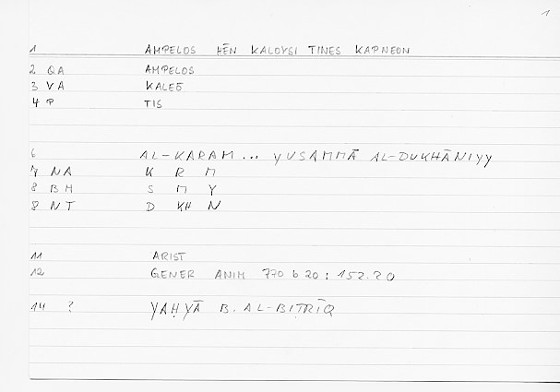 1
1 AMPELOS HĒN KALOYSI TINES KAPNEON
2 QA AMPELOS
3 VA KALEE
4 P TIS
6 AL-KARAM... YUSAMMĀ AL-DUKHĀNIYY
7 NA K R M
8 BM S M Y
8 NT D KH N
11 ARIST
12 GENER ANIM 770 b 20 : 152.20
14 ? YAḤYĀ B. AL-BIṬRĪQ